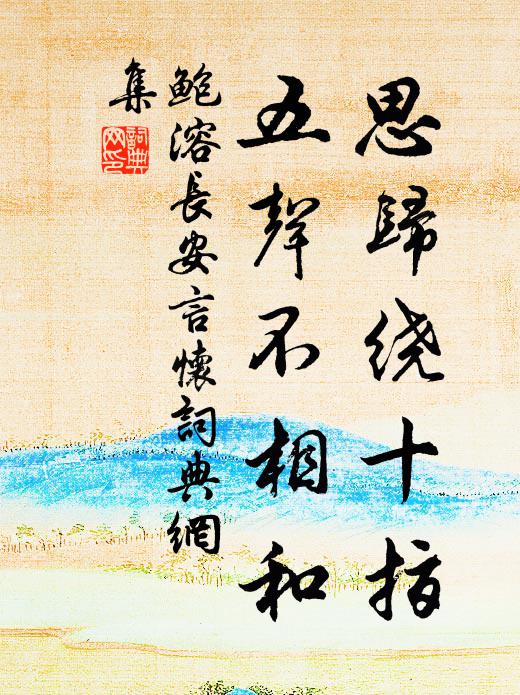 思歸绕十指
五聲不相和
鲍溶長安言懷詞典網
集
詞典
网印